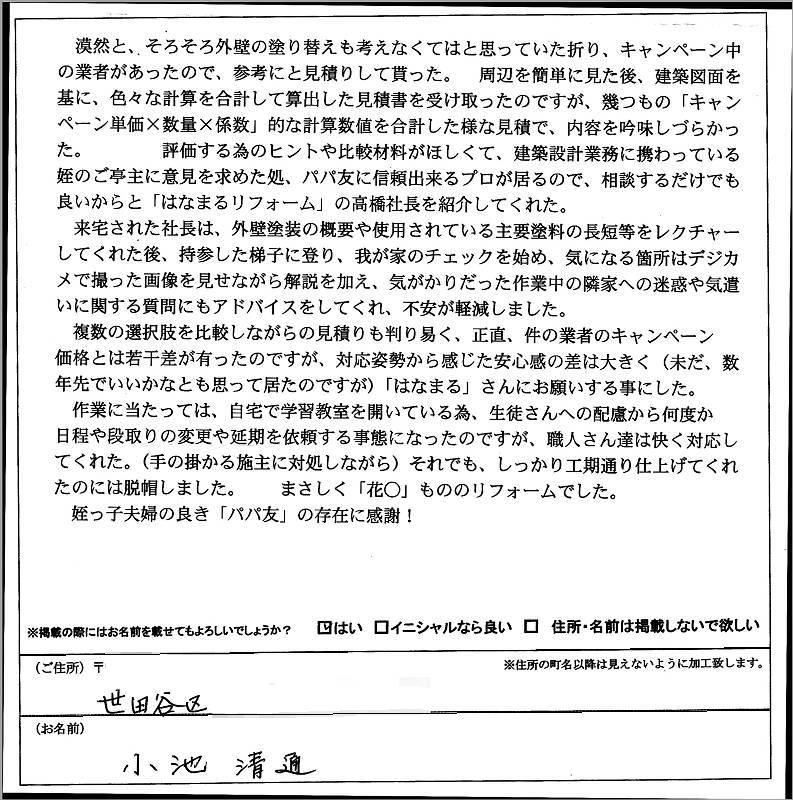 漠然と、そろそろ外壁の塗り替えも考えなくてはと思っていた折り、キャンペーン中
の業者があったので、参考にと見積りして貰った。　周辺を簡単に見た後、建築図面を
基に、色々な計算を合計して算出した見積書を受け取ったのですが、幾つもの「キャン
ペーン単価×数量×係数」的な計算数値を合計した様な見積で、内容を吟味しづらかっ
た。　　　　評価する為のヒントや比較材料がほしくて、建築設計業務に携わっている
姪のご亭主に意見を求めた処、パパ友に信頼出来るプロが居るので、相談するだけでも
良いからと「はなまるリフォーム」の高橋社長を紹介してくれた。
来宅された社長は、外壁塗装の概要や使用されている主要塗料の長短等をレクチャー
してくれた後、持参した梯子に登り、我が家のチェックを始め、気になる箇所はデジカ
メで撮った画像を見せながら解説を加え、気がかりだった作業中の隣家への迷惑や気遣
いに関する質問にもアドバイスをしてくれ、不安が軽減しました。
複数の選択肢を比較しながらの見積りも判り易く、正直、件の業者のキャンペーン
価格とは若干差が有ったのですが、対応姿勢から感じた安心感の差は大きく（未だ、数
年先でいいかなとも思って居たのですが）「はなまる」さんにお願いする事にした。
作業に当たっては、自宅で学習教室を開いている為、生徒さんへの配慮から何度か
日程や段取りの変更や延期を依頼する事態になったのですが、職人さん達は快く対応し
てくれた。（手の掛かる施主に対処しながら）それでも、しっかり工期通り仕上げてくれ
たのには脱帽しました。　　まさしく「花〇」もののリフォームでした。
姪っ子夫婦の良き「パパ友」の存在に感謝！
※掲載の際にはお名前を載せてもよろしいでしょうか？　☑はい　□イニシャルなら良い　□　住所・名前は掲載しないで欲しい
（ご住所）〒　※住所の町名以降は見えないように加工致します。
世田谷区
（お名前）
小池 清通